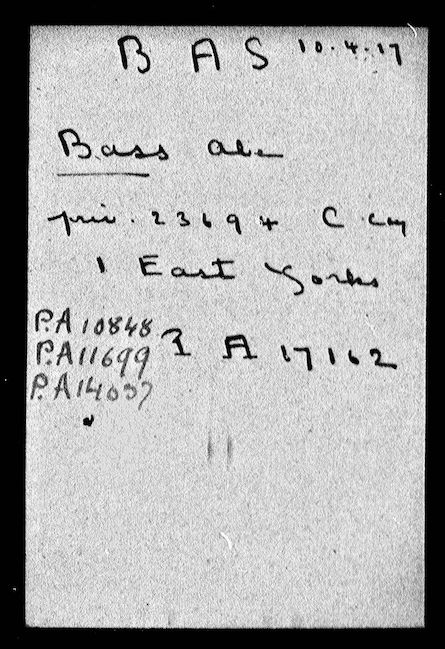 B A S 10.4.17
Bass Abe
priv. 23694 C Coy
1 East Yorks
P.A 10848
P.A 11699
P.A 14037
R A 17162